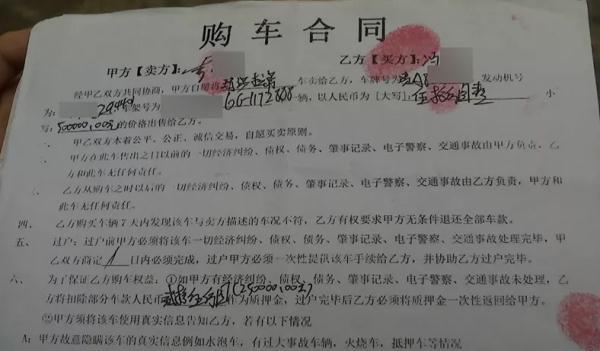 购车合同
甲方【卖方】： 乙方【买方】：
经甲乙双方共同协商，甲方自愿将 车卖给乙方，车牌号为 发动机号
为： 架号为 一辆，以人民币为【大写】： 小
写： 的价格出售给乙方。
甲乙双方本着公平、公正，诚信交易，自愿买卖原则。
甲方在此车售出之日以前的一切经济纠纷、债权、债务、肇事记录、电子警察、交通事故由甲方负责，乙
方和此车无任何责任。
乙方从购车之时以后的一切经济纠纷、债权、债务、肇事记录、电子警察、交通事故由乙方负责，甲方和
此车无任何责任。
四、 乙方购买车辆7天内发现该车与卖方描述的车况不符，乙方有权要求甲方无条件退还全部车款。
五、 过户：过户前甲方必须将车一切经济纠纷、债权、债务、肇事记录、电子警察、交通事故处理完毕，甲
乙双方商定 日内必须完成，过户甲方必须一次性提供该车手续给乙方，并协助乙方过户完毕。
六、 为了保证乙方购车权益：①如甲方有经济纠纷、债权、债务、肇事记录、电子警察、交通事故未处理，乙
方将扣除部分车款人民币 作为质押金，过户完毕后乙方必须将质押金一次性返回给甲方。
②甲方须将该车使用真实信息告知乙方，若有以下情况
A：甲方故意隐瞒该车的真实信息例如水泡车，有过大事故车辆，火烧车，抵押车等情况